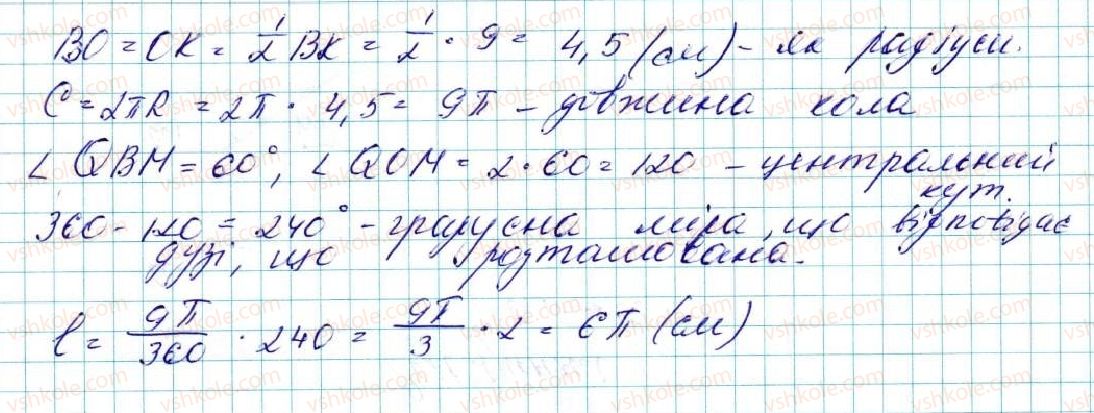 BO = OK = 1/2 BK = 1/2 · 9 = 4,5 (см) - як радіуси.
C = 2πR = 2π · 4,5 = 9π - довжина кола
∠QBM = 60°, ∠QOM = 2·60 = 120 - центральний кут.
360 - 120 = 240° - градусна міра, що відповідає
дузі, що розташована.
l = 9π/360 · 240 = 9π/3 · 2 = 6π (см)
vshkole.com